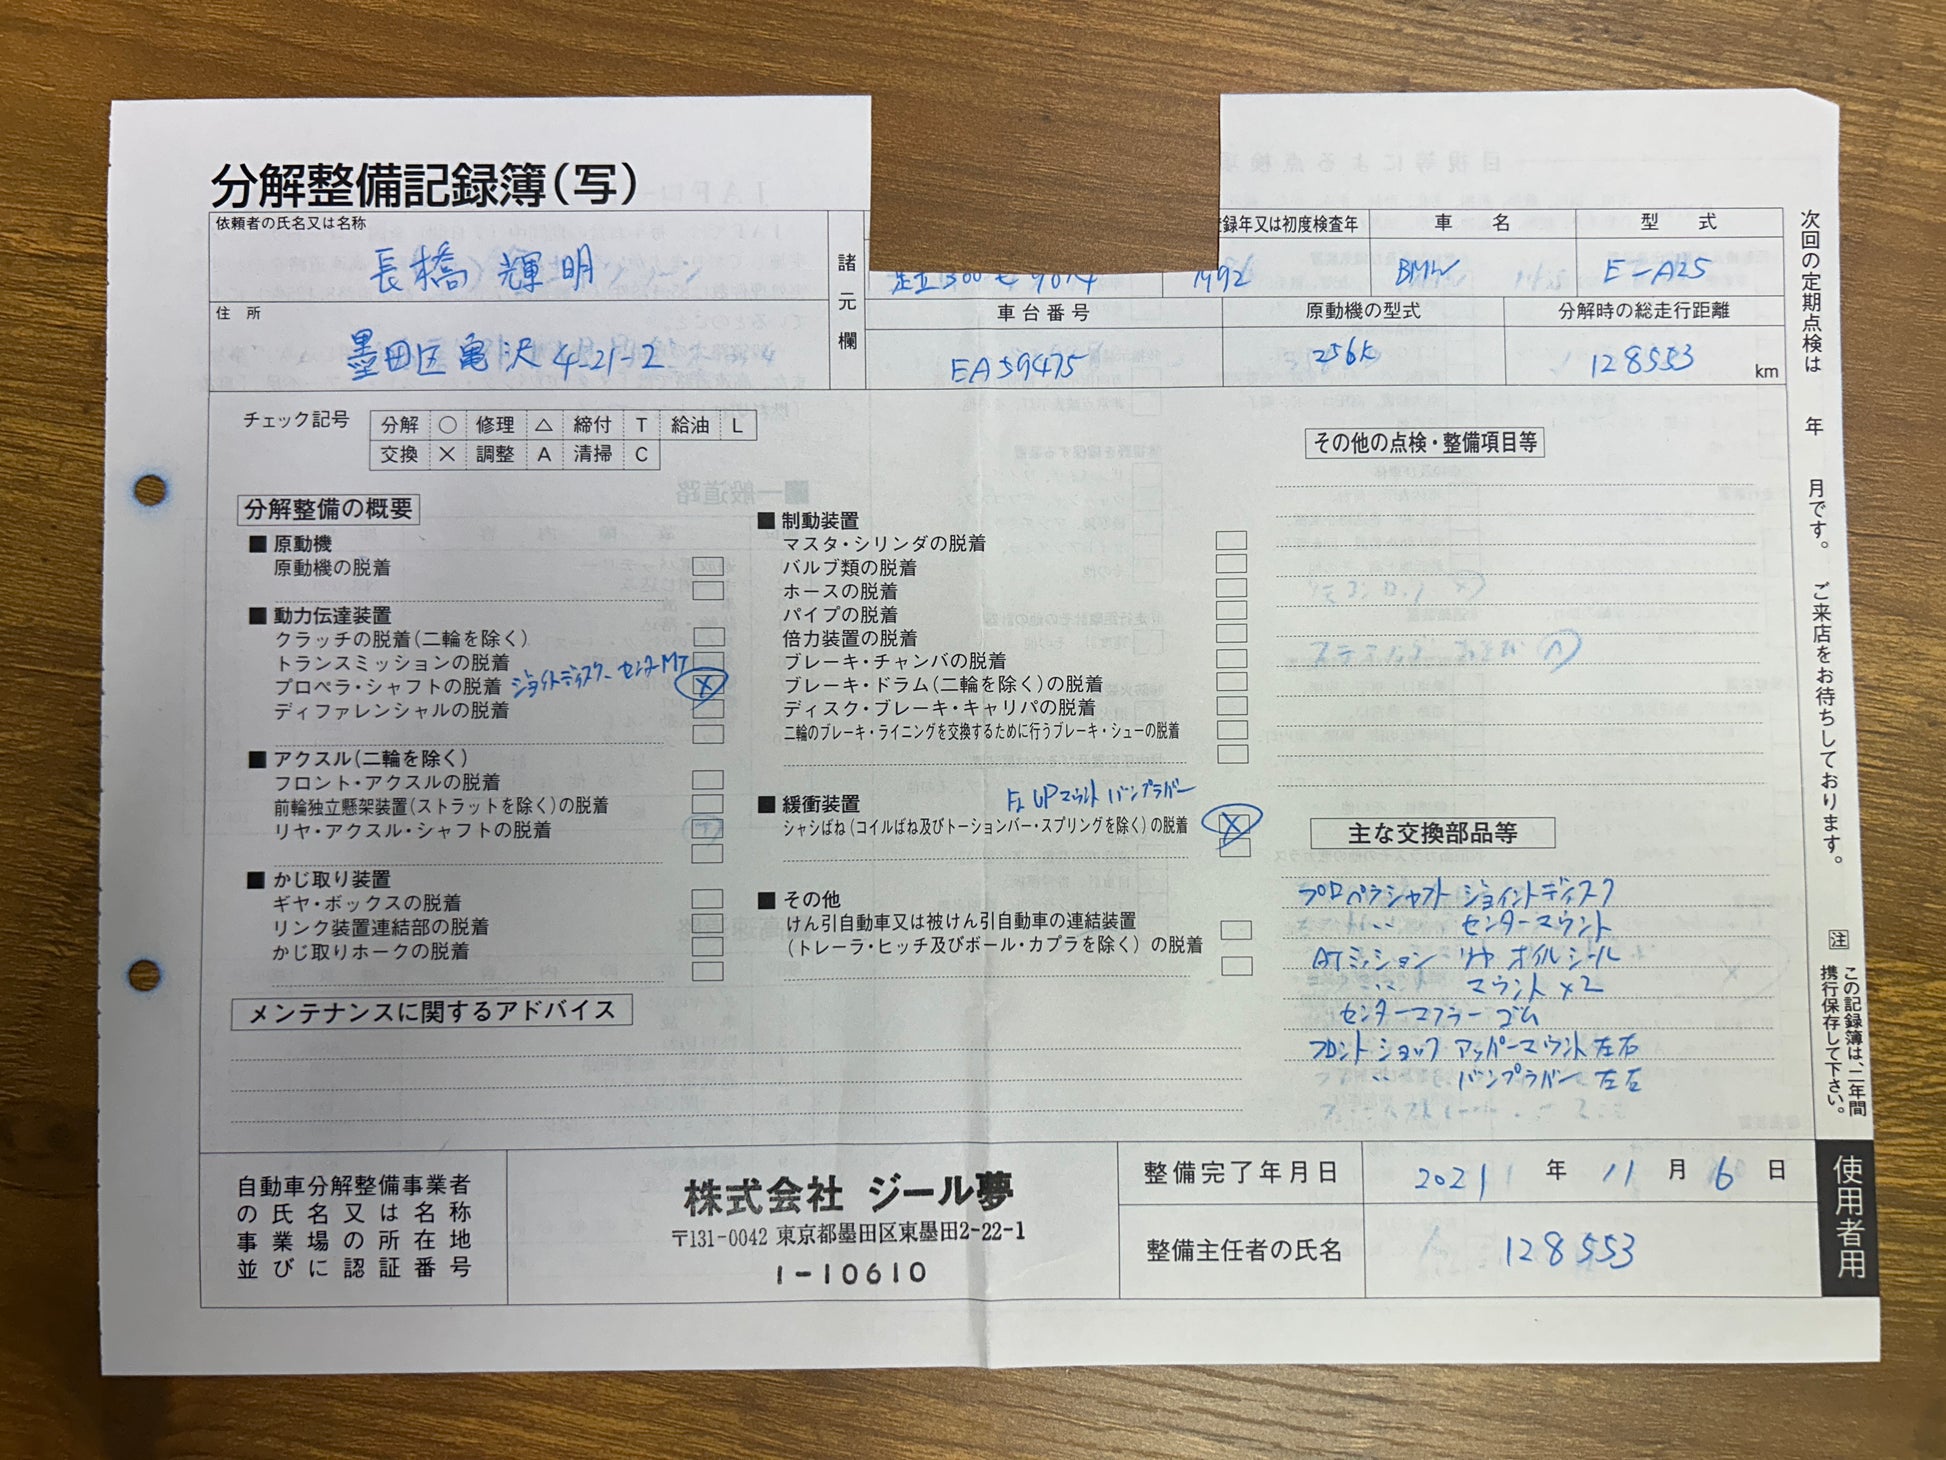 分解整備記録簿(写)
依頼者の氏名又は名称
長橋 輝明
住所
墨田区亀沢4-21-2
諸元欄
登録年又は初度検査年
車名
型式
足立300 9074
1992
BMW
E-A25
車台番号
原動機の型式
分解時の総走行距離
EA59475
256K
128553 km
チェック記号
分解 ○ 修理 △ 締付 T 給油 L
交換 × 調整 A 清掃 C
分解整備の概要
■ 原動機
原動機の脱着
■ 動力伝達装置
クラッチの脱着(二輪を除く)
トランスミッションの脱着
プロペラ・シャフトの脱着 ジョイントディスク、センターMT ×
ディファレンシャルの脱着
■ アクスル(二輪を除く)
フロント・アクスルの脱着
前輪独立懸架装置(ストラットを除く)の脱着
リヤ・アクスル・シャフトの脱着
■ かじ取り装置
ギヤ・ボックスの脱着
リンク装置連結部の脱着
かじ取りホークの脱着
■ 制動装置
マスタ・シリンダの脱着
バルブ類の脱着
ホースの脱着
パイプの脱着
倍力装置の脱着
ブレーキ・チャンバの脱着
ブレーキ・ドラム(二輪を除く)の脱着
ディスク・ブレーキ・キャリパの脱着
二輪のブレーキ・ライニングを交換するために行うブレーキ・シューの脱着
UPマウント バンプラバー
■ 緩衝装置
シャシばね(コイルばね及びトーションバー・スプリングを除く)の脱着 ×
■ その他
けん引自動車又は被けん引自動車の連結装置
(トレーラ・ヒッチ及びボール・カプラを除く)の脱着
その他の点検・整備項目等
主な交換部品等
プロペラシャフト ジョイントディスク
〃 センターマウント
ATミッション リヤ オイルシール
〃 マウント ×2
センターマフラー ゴム
フロント ショック アッパーマウント 左右
〃 バンプラバー 左右
メンテナンスに関するアドバイス
自動車分解整備事業者
の氏名又は名称
事業場の所在地
並びに認証番号
株式会社 ジール夢
〒131-0042 東京都墨田区東墨田2-22-1
1-10610
整備完了年月日
2021 年 11 月 6 日
整備主任者の氏名
128553
次回の定期点検は 年 月です。ご来店をお待ちしております。
注 この記録簿は、二年間
携行保存して下さい。
使用者用